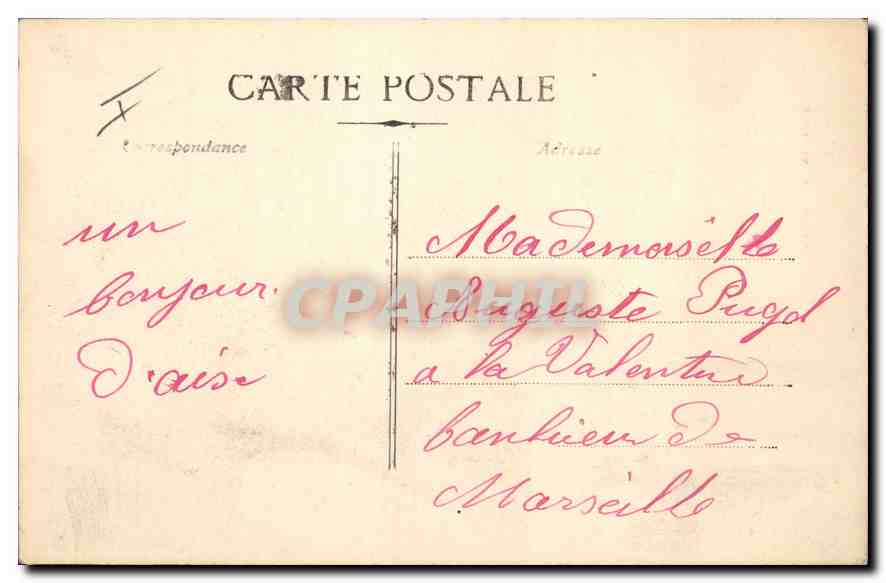 CARTE POSTALE
Correspondance
Adresse
un
bonjour
d'aise
Mademoiselle
Auguste Pugd
a la Valentine
banlieu de
Marseille
CPAPHIL